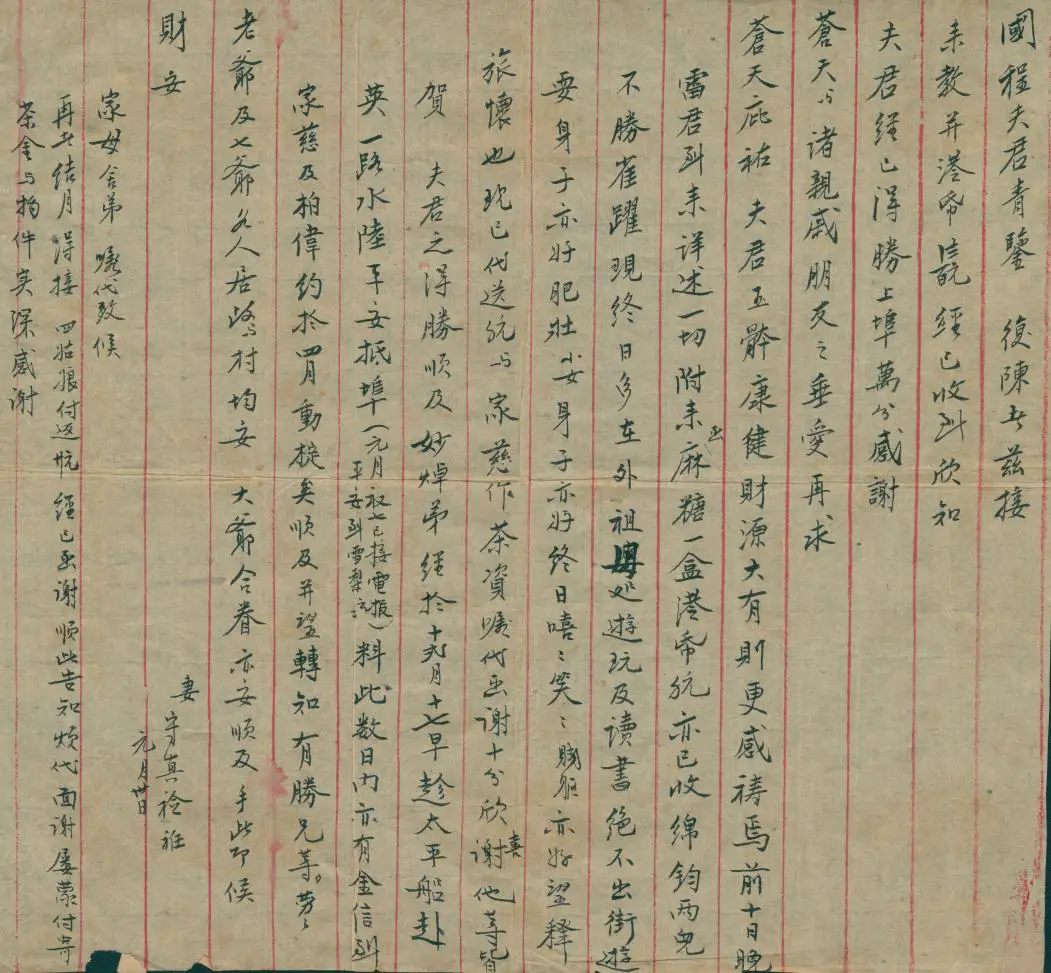 國程夫君青鑒　復陳者茲接
來教并港幣 經已收到欣知
夫君經已得勝上埠萬分感謝
蒼天与諸親戚朋友之垂愛再求
蒼天庇祐　夫君玉體康健財源大有則更感禱焉前十日晚
雷君到來詳述一切附來麻糖一盒港幣 亦已收綿鈞兩兒
不勝雀躍現終日多在外祖母处遊玩及讀書絶不出街遊
耍身子亦好肥壮小女身子亦好終日嘻〻笑〻賤軀亦好望釋
旅懷也现已代送 与　家慈作茶資囑代函謝十分欣喜謝他等皆
賀　夫君之得勝順及　妙焯弟經於十 月十七早趁太平船赴
英一路水陸平安抵埠（元月初七已接電报平安到雪梨 ）料此數日内亦有金信到
家慈及柏偉約於四月動梹矣順及并望轉知有勝兄等。勞〻
老爺及七爺各人居 与村均安　大爺合眷亦安順及手此即候
財安
妻　守真裣衽
元月卅日
家母舍弟　囑代致候
再者結月　得接　四姑娘付返 經已函謝順此告知煩代面謝屡蒙付寄
茶金与物件实深感谢